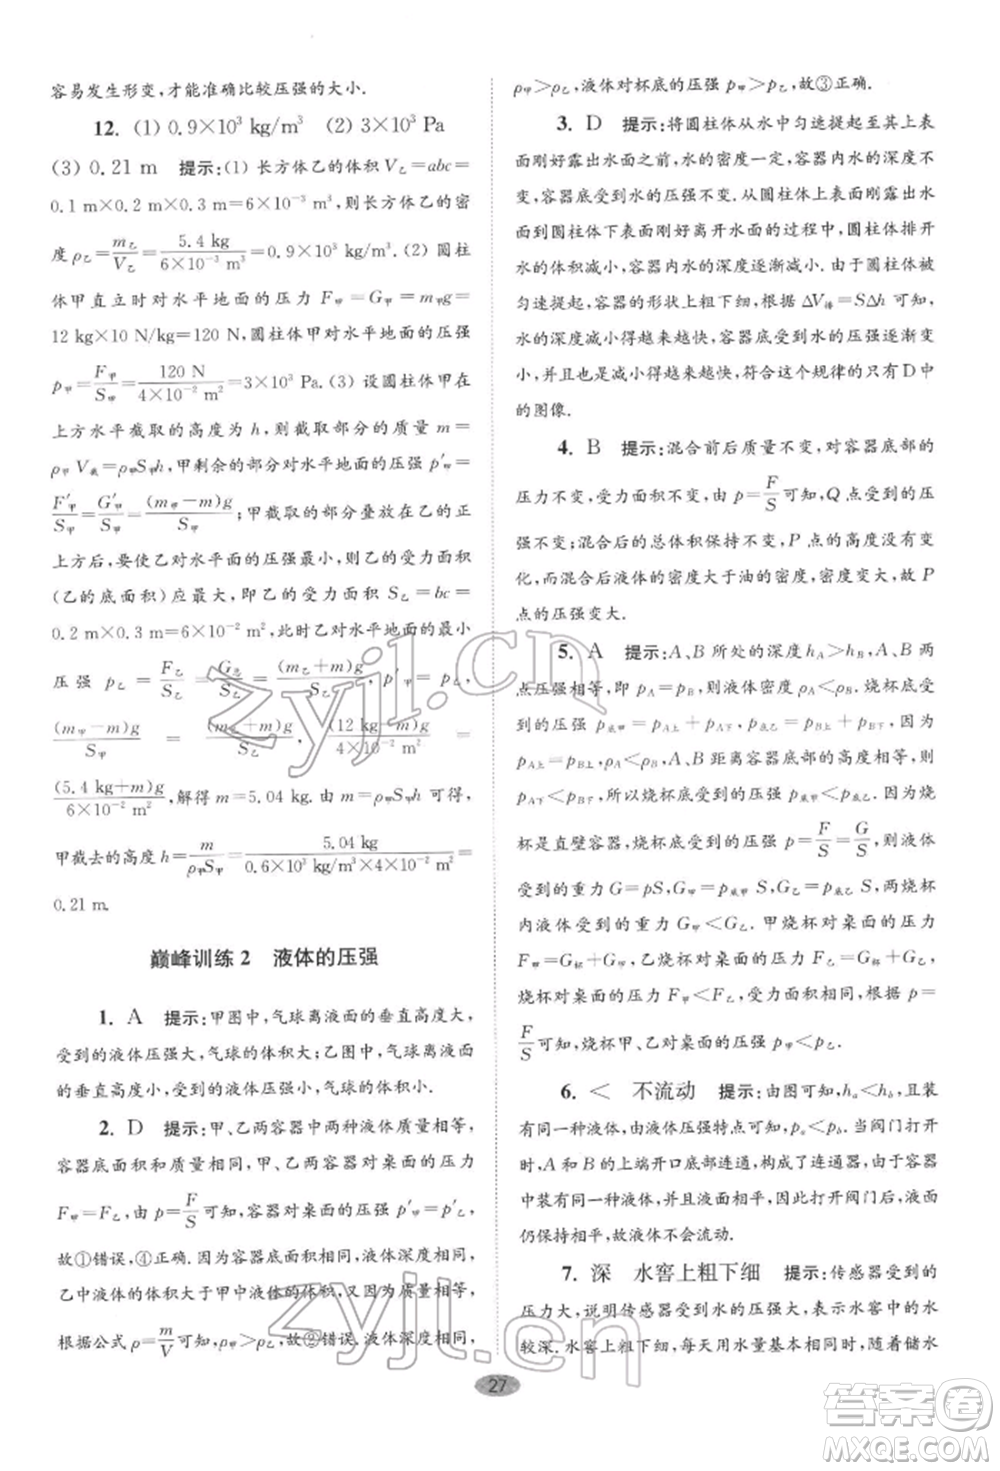 容易发生形变,才能准确比较压强的大小.
12. (1) 0.9×10³ kg/m³ (2) 3×10³ Pa
(3) 0.21 m 提示:(1) 长方体乙的体积 V乙=abc=
0.1 m×0.2 m×0.3 m=6×10⁻³ m³,则长方体乙的密
度 ρ乙=m乙/V乙=5.4 kg/(6×10⁻³ m³)=0.9×10³ kg/m³.(2) 圆柱
体甲直立时对水平地面的压力 F甲=G甲=m甲g=
12 kg×10 N/kg=120 N,圆柱体甲对水平地面的压强
p甲=F甲/S甲=120 N/(4×10⁻² m²)=3×10³ Pa.(3) 设圆柱体甲在
上方水平截取的高度为 h,则截取部分的质量 m=
ρ甲V截=ρ甲S甲h,甲剩余的部分对水平地面的压强 p′甲=
F′甲/S甲=G′甲/S甲=(m甲-m)g/S甲;甲截取的部分叠放在乙的正
上方后,要使乙对水平面的压强最小,则乙的受力面积
(乙的底面积)应最大,即乙的受力面积 S乙=bc=
0.2 m×0.3 m=6×10⁻² m²,此时乙对水平地面的最小
压强 p乙=F乙/S乙=G乙/S乙=(m乙+m)g/S乙=
(m甲-m)g/S甲=(m乙+m)g/S乙=(12 kg-m)g/(4×10⁻² m²)=
(5.4 kg+m)g/(6×10⁻² m²),解得 m=5.04 kg. 由 m=ρ甲S甲h 可得,
甲截去的高度 h=m/(ρ甲S甲)=5.04 kg/(0.6×10³ kg/m³×4×10⁻² m²)=
0.21 m.
巅峰训练 2 液体的压强
1. A 提示:甲图中,气球离液面的垂直高度大,
受到的液体压强大,气球的体积大;乙图中,气球离液面
的垂直高度小,受到的液体压强小,气球的体积小.
2. D 提示:甲、乙两容器中两种液体质量相等,
容器底面积与质量相同,甲、乙两容器对桌面的压力
F甲=F乙,由 p=F/S可知,容器对桌面的压强 p′甲=p′乙,
故①错误,④正确. 因为容器底面积相同,液体深度相同,
乙中液体的体积大于甲中液体的体积,液体质量相同,
根据公式 ρ=m/V可知,ρ甲>ρ乙,故②错误. 液体深度相同,
ρ甲>ρ乙,液体对杯底的压强 p甲>p乙,故③正确.
3. D 提示:将圆柱体从水中匀速提起至上表
面刚好露出水面之前,水的密度一定,容器内水的深度不
变,容器底受到水的压强不变. 从圆柱体上表面刚露出水
面到圆柱体下表面刚好离开水面的过程中,圆柱体排开
水的体积减小,容器内水的深度减小. 由于圆柱体被
匀速提起,容器的形状上粗下细,由 ΔV排=SΔh 可知,
水的深度减小得越来越快,容器底受到水的压强逐渐变
小,并且减小得越来越快,符合这个规律的只有 D 中
的图像.
4. B 提示:混合前后质量不变,对容器底部的
压力不变,受力面积不变,由 p=F/S可知,Q 点受到的压
强不变;混合后的总体积保持不变,P 点的深度不变,
而混合后液体的密度大于油的密度,密度变大,故 P
点的压强变大.
5. A 提示:A、B 所处的深度 hA>hB,A、B 两
点压强相等,即 pA=pB,则液体密度 ρA<ρB. 烧杯底受
到的压强 p底甲=pA上+pA下,p底乙=pB上+pB下,由于
pA上=pB上,A、B 距离容器底的高度相同,ρA<ρB,
pA下<pB下,所以烧杯底受到的压强 p底甲<p底乙. 烧
杯是直壁容器,烧杯底受到的压强 p=F/S=G/S,则液体
受到的重力 G=pS,又因为 p底甲<p底乙,两烧杯
内液体的重力 G甲<G乙. 甲烧杯对桌面的压力
F甲=G杯+G甲,乙烧杯对桌面的压力 F乙=G杯+G乙,
烧杯对桌面的压力 F甲<F乙,受力面积相同,根据 p=
F/S可知,烧杯甲、乙对桌面的压强 p甲<p乙.
6. < 不流动 提示:由图可知,ha<hb,且装
有同一种液体,由液体压强特点可知,pa<pb. 当阀门打开
时,A 和 B 的上端开口底部连通,构成了连通器,由于容器
中装有同一种液体,且液面相平,因此打开阀门后,液面
仍保持相平,故液体不会流动.
7. 深 水窖上粗下细 提示:传感器受到的
压力大,说明传感器受到的压强大,表示水窖中的水
较深. 水窖上粗下细,每天用水量基本相同,随着储水
27
zyjl.cn
zyjl.cn
答案卷
MXQE.COM